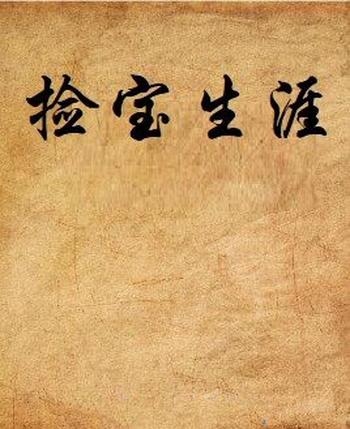 捡宝生涯